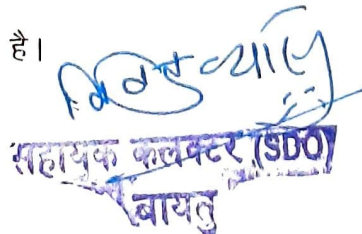 है।
सहायक कलक्टर (SDO)
बायतु